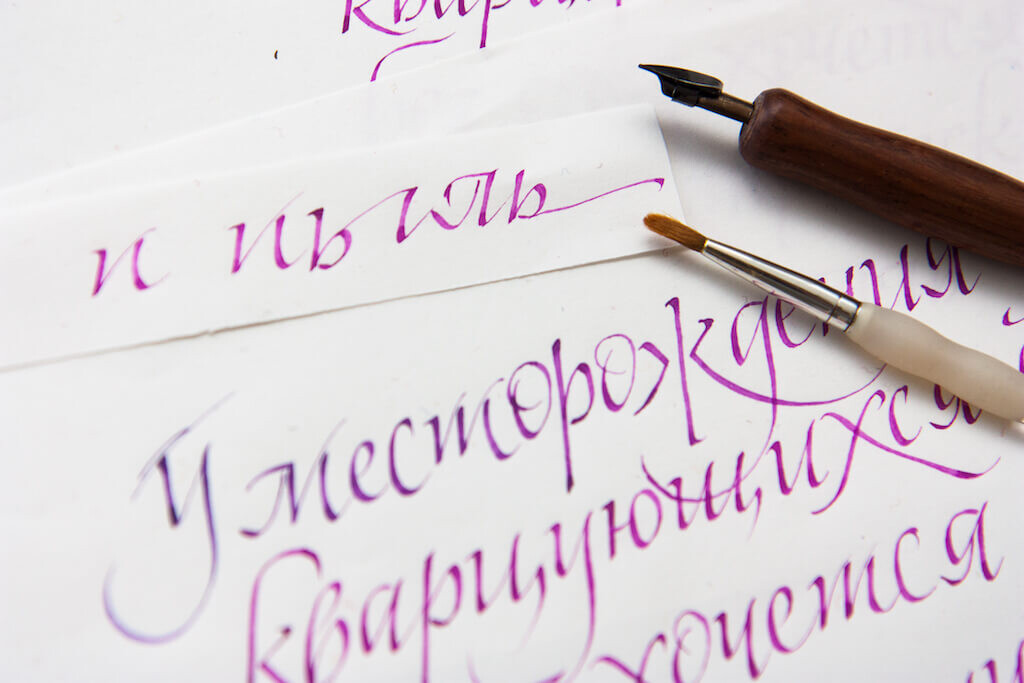 и пыль
У месторождения
кварцующихся
хочется